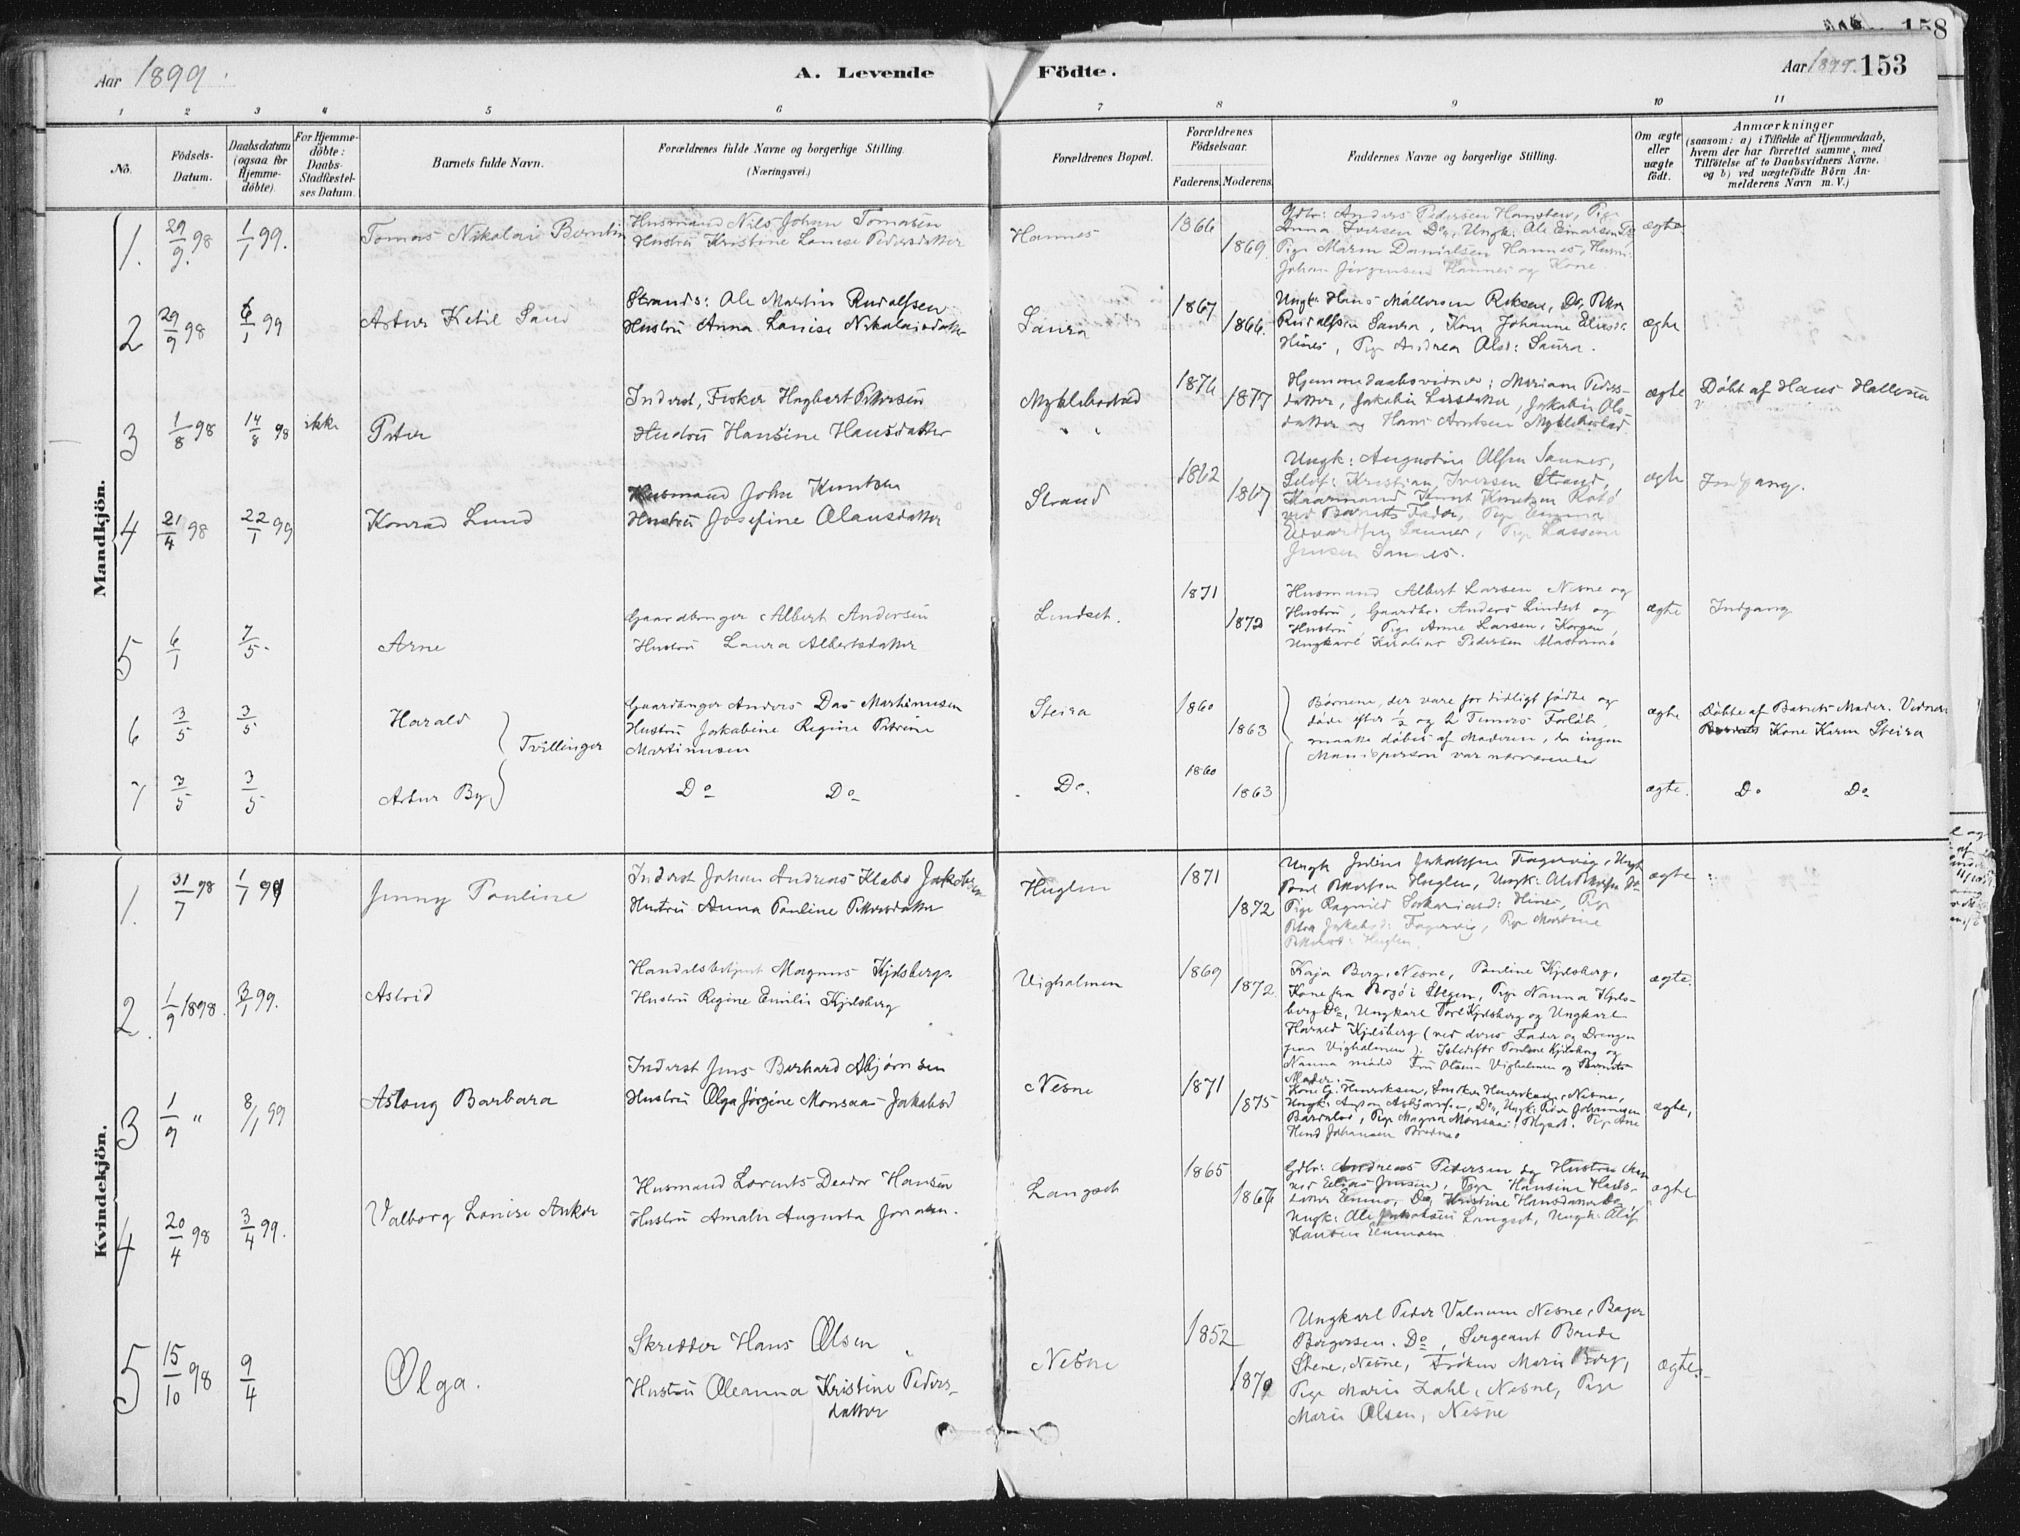 158
Aar 1899.
A. Levende
Födte.
Aar 1899. 153
1 2 3 4 5 6 7 8 9 10 11
No.
Födsels-
Datum.
Daabsdatum
(ogsaa for
Hjemme-
döbte).
For Hjemme-
döbte:
Daabs-
Stadfæstel-
ses Datum.
Barnets fulde Navn.
Forældrenes fulde Navne og borgerlige Stilling.
(Næringsvei.)
Forældrenes Bopæl.
Forældrenes
Födselsaar.
Faderens. Moderens.
Faddernes Navne og borgerlige Stilling.
Om ægte
eller
uægte
födt.
Anmærkninger
(saasom: a) i Tilfælde af Hjemmedaab,
hvem der har forrettet samme, med
Tilföielse af to Daabsvidners Navne,
og b) ved uægtefödte Börn An-
melderens Navn m. V.)
Mandkjön.
1. 29/9 98 1/1 99. Tomas Nikolai Berntin
Husmand Nils Johan Tomassen
Hustru Kristine Lovise Pedersdatter
Hannes 1866 1869.
Gdbr: Anders Pedersen Hamsten, Pige
Anna Iversen Do, Ungk: Ole Einarsen
Pige Maren Danielsen Hannes, Husm:
Johan Jörgensen Hannes og Kone
ægte
2 29/9 98 6/1 99 Artur Ketil Sand
Strands: Ole Martin Rudolfsen
Hustru Anna Lovise Nikolaisdatter
Saura 1867 1866.
Ungk: Hans Mollersen Do, Peter
Rudolfsen Saura, Kone Johanne
, Pige Andrea Olsd: Saura.
ægte
3 1/8 98 14/8 98 ikke Peter
Inderst, Fisker Hagbart Pettersen
Hustru Hansine Hansdatter
Myklebostad
" "
1876 1877
Hjemmedaabsvidner: Mariane Peders-
datter, Jakobie Larsdatter, Jakobie Ols-
datter og Hans Arntsen Myklebostad.
ægte Döbt af Hans Hallesen
4 21/4 98 22/1 99 Konrad Lund
Husmand John Knutsen
Hustru Josefine Olausdatter
Strand 1862 1867
Ungk: Augustin Olsen Sannes,
Selvf: Kristian Iversen Strand,
Kaarmand Knut Knutsen
ved Barnets Fader, Pige Emma
Edvardsen Sannes, Pige
Jensen Sannes.
ægte Indgang.
5 6/1 7/5. Arne
Gaardbruger Albert Andersen
Hustru Laura Albertsdatter
Lindset. 1871 1872
Husmand Albert Larsen Nesne og
Hustru, Gaardbr: Anders Lindset og
Hustru, Pige Anne Larsen, Korgen,
Ungkarl Karolius Pedersen
ægte Indgang
6 3/5 3/5 Harald
Tvillinger
Gaardbruger Anders Das Martinusen
Hustru Jakobine Regine Petrine
Martinusen
Steira 1860 1863
Börnene, der vare for tidligt födte og
döde efter 1/2 og 2 Timers Forlöb,
maatte döbes af Moderen, da ingen
Mandsperson var nærværende
ægte Döbte af Barnets Moder. Vidner
Kone Karen Steira
7 3/5 3/5 Artur By
Do Do Do. 1860 1863 ægte. Do Do
Kvindekjön.
1. 31/7 98 1/1 99 Jenny Pauline
Inderst Johan Andreas Klabo Jakobsen
Hustru Anna Pauline Pettersdatter
Huglen 1871 1872
Ungk Julius Jakobsen Fagervig, Ungk
Petterson Huglen, Ungk: Ole Do
Pige Ragnild Hines, Pige
Petra Jakobsd: Fagervig, Pige Martine
Huglen.
ægte
2. 1/9 1898. 3/1 99. Astrid
Handelsbetjent Magnus Kjelsberg
Hustru Regine Emilie Kjelsberg
Vigholmen 1869 1872.
Kaja Berg, Nesne, Pauline Kjelsberg,
Kone fra Bogö i Stegen, Pige Nanna Kjels-
berg Do, Ungkarl Torl Kjelsberg og Ungkarl
Harald Kjelsberg (ved deres Fader og Drengen
paa Vigholmen). Istedetfor Pauline Kjelsberg og
Nanna mödte Fru Olsen Vigholmen og Barnets
Moder.
ægte.
3 1/9 " 8/1 99 Aslaug Barbara
Inderst Jens Berhard Asbjörnsen
Hustru Olga Jörgine Monsaas Jakobsd
Nesne 1871 1875
Kone G. Henriksen, Henriksen, Nesne,
Ungk: Anton Asbjörnsen, Do, Ungk: Peder Johannesen
, Pige Magna Monsaas, , Pige Ane
Johansen
ægte,
4 20/4 98 3/4 99. Valborg Lovise Anker
Husmand Lorents Deodor Hansen
Hustru Amalie Augusta
Langset 1865 1867
Gdbr: Andreas Pedersen og Hustru
ved Jensen), Pige Hansine Hans-
datter , Do, Kristine Hansdatter Do,
Ungk: Ole Jakobsen Langset, Ungk: Olaf
Hansen
ægte
5 15/10 98 9/4 Olga.
Skredder Hans Olsen
Hustru Oleanna Kristine Peders-
datter
Nesne 1852 1870
Ungkarl Peder Valnum Nesne, Bager
Borgersen. Do, Sergeant Brede
Stene, Nesne, Fröken Marie Berg,
Pige Marie Zahl, Nesne, Pige
Marie Olsen, Nesne
ægte.